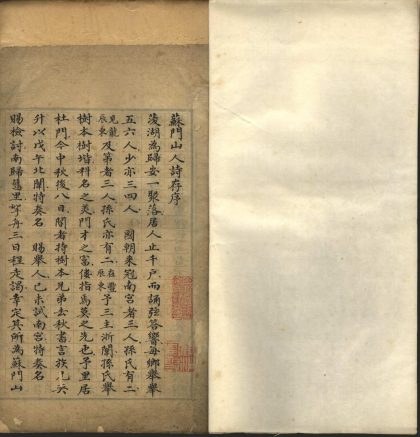 蘇門山人詩存序
淩湖為歸安一聚落居人止千戶而誦弦答響每鄉舉舉
五六人少亦三四人 國朝來冠南宮者三人孫氏有二
及第者三人孫氏亦有二 予三主浙闈孫氏舉
樹本樹堦科名之美門才之富僂指為莫之先也予里居
杜門今中秋後八日閽者持樹本兄弟去秋書言族兄
升以戊午北闈特奏名 賜舉人己未試南宮特奏名
賜檢討南歸舊里 舟三日程走謁幸定其所為蘇門山